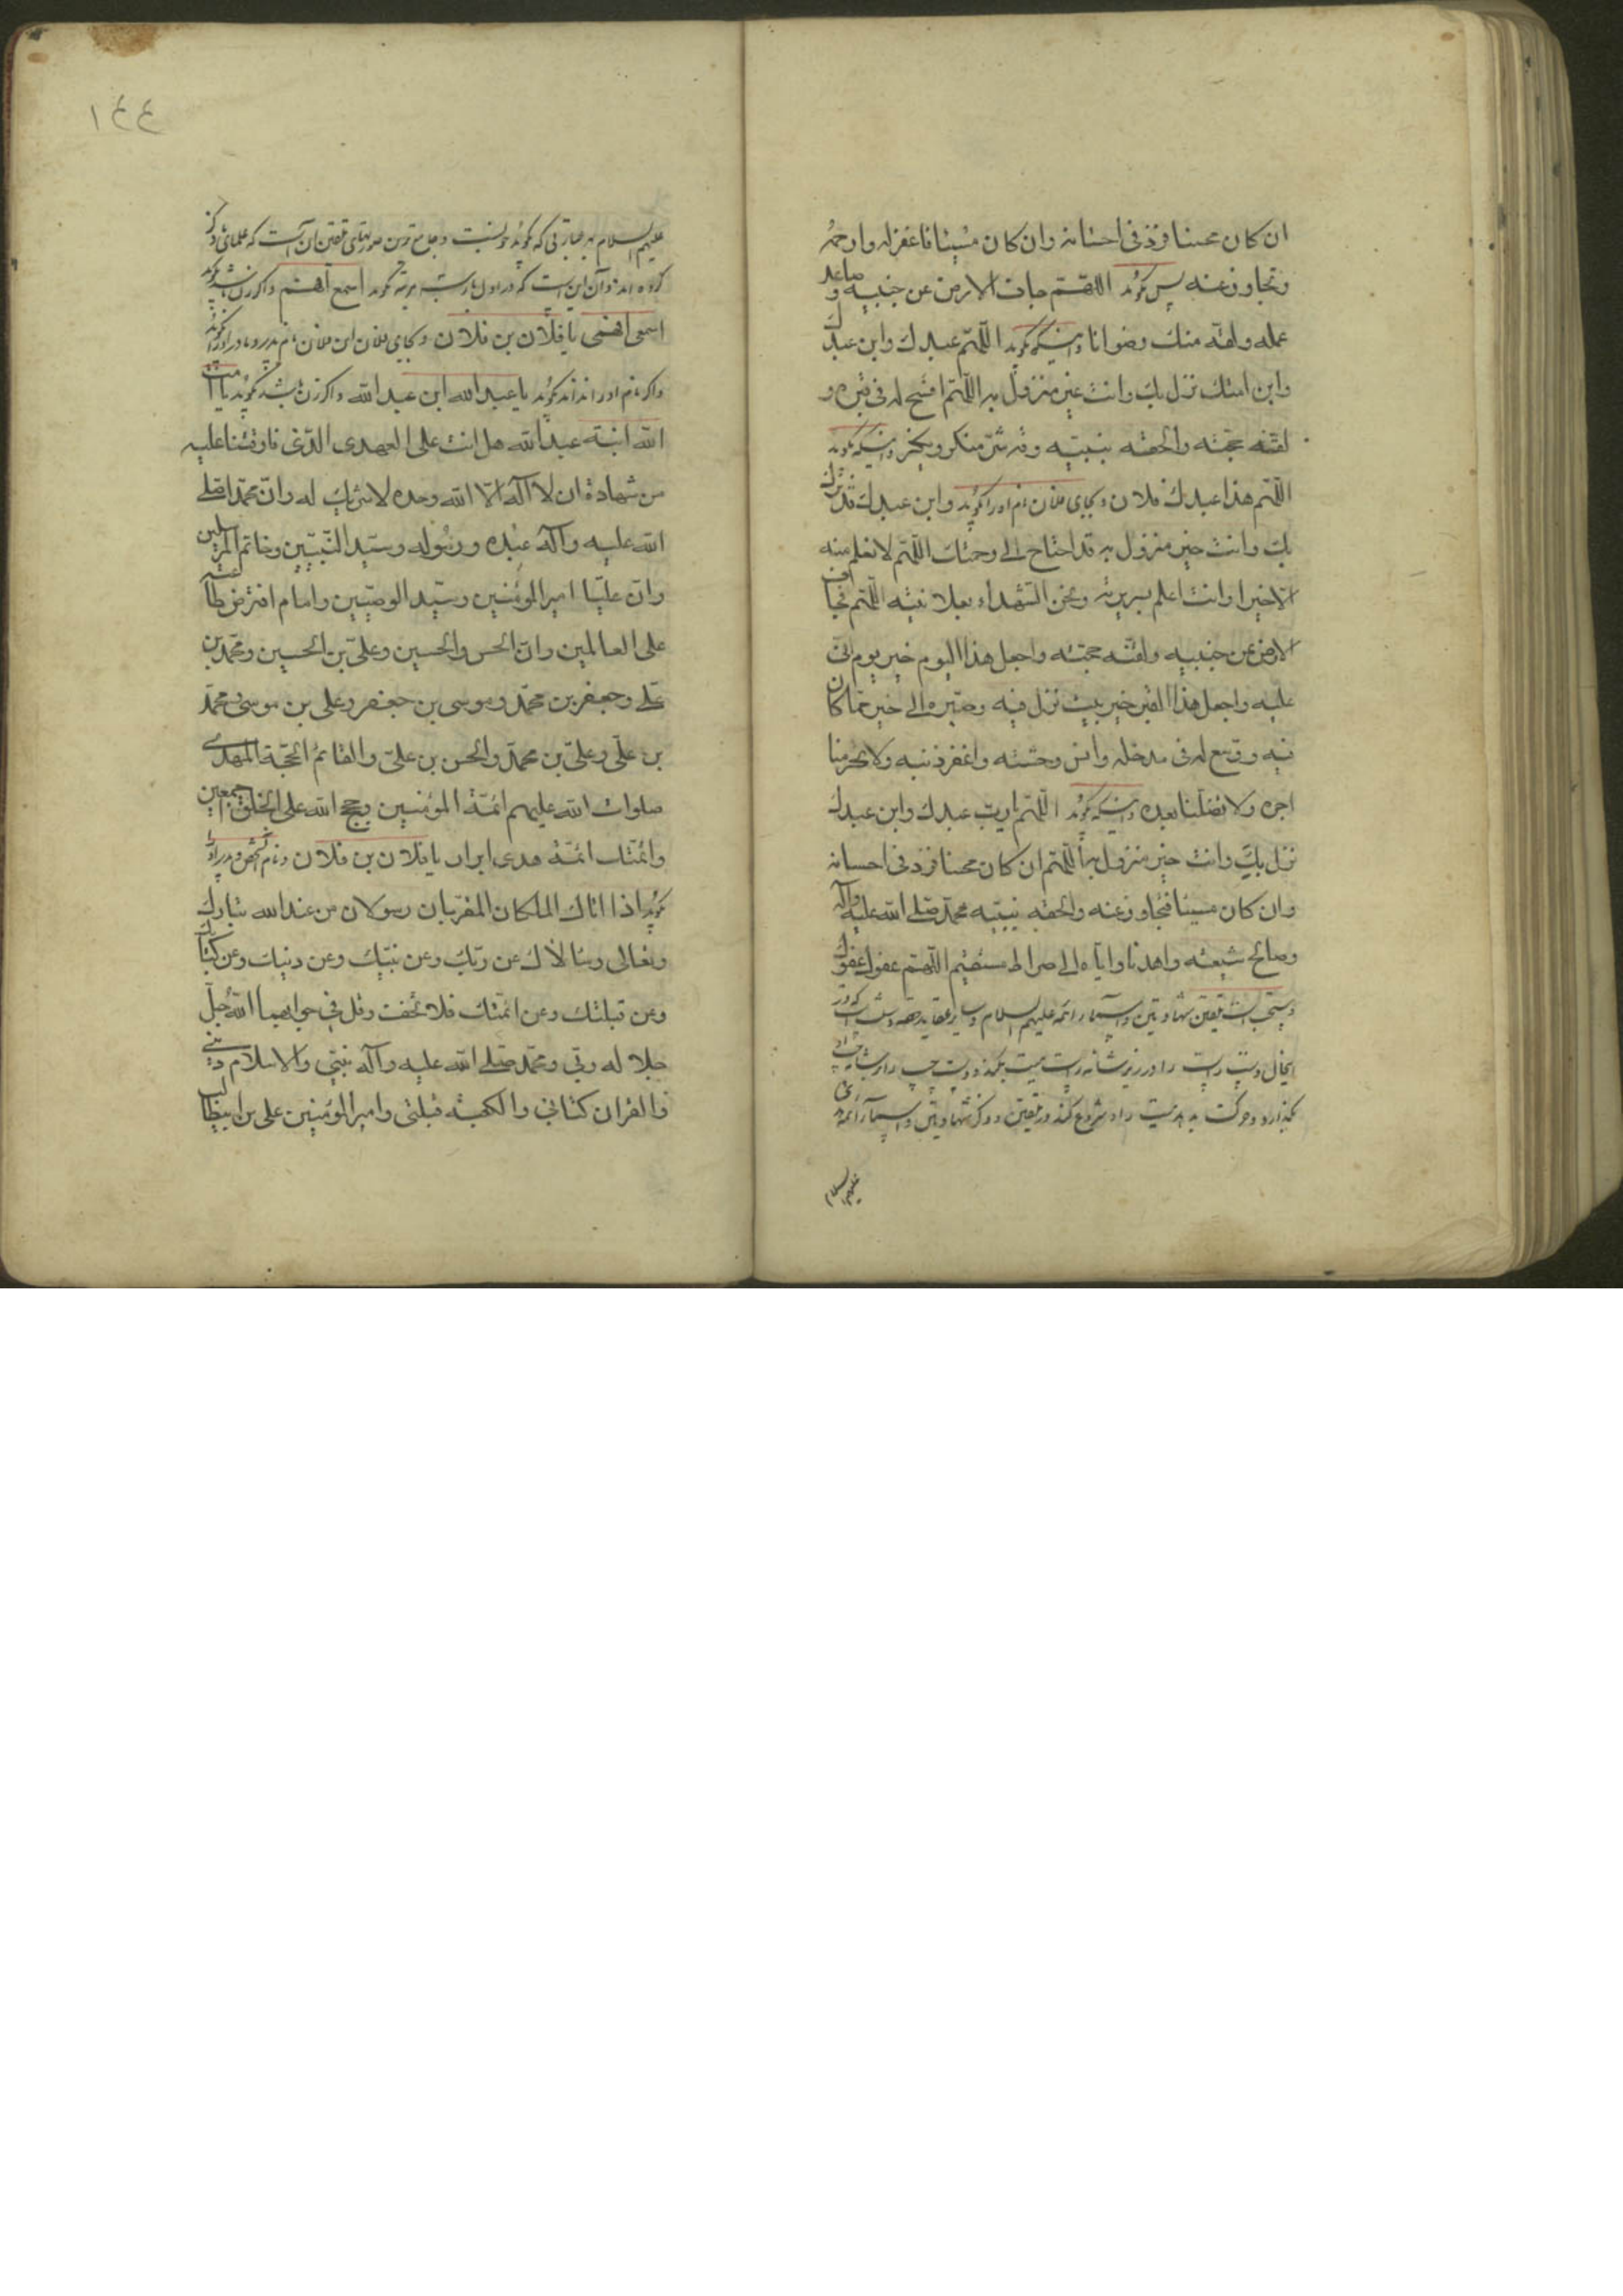 ان كان محسنا فزد في احسانه وان كان مسيئا فاغفر له وارحمه
وتجاوز عنه پس گويد اللهم جاف الارض عن جنبيه وصاعد
عمله ولقه منك رضوانا وانگه گويد اللهم عبدك وابن عبدك
وابن امتك نزل بك وانت خير منزول به اللهم افسح له في قبره و
لقنه حجته والحقه بنبيه وقه شر منكر ونكير وانگه گويد
اللهم هذا عبدك فلان وبجاى فلان نام او را گويد وابن عبدك قد نزل
بك وانت خير منزول به قد احتاج الى رحمتك اللهم لا نعلم منه
الا خيرا وانت اعلم بسريرته ونحن الشهداء بعلانيته اللهم فجاف
الارض عن جنبيه ولقنه حجته واجعل هذا اليوم خير يوم اتى
عليه واجعل هذا القبر خير بيت نزل فيه وصيره الى خير مما كان
فيه ووسع له في مدخله وانس وحشته واغفر ذنبه ولا تحرمنا
اجره ولا تضلنا بعده وانگه گويد اللهم يا رب عبدك وابن عبدك
نزل بك وانت خير منزول به اللهم ان كان محسنا فزد في احسانه
وان كان مسيئا فتجاوز عنه والحقه بنبيه محمد صلى الله عليه وآله
وصالح شيعته واهدنا واياه الى صراط مستقيم اللهم عفوك عفوك
ومستحب است تلقين شهادتين واسماء ائمه عليهم السلام وساير عقايد حقه
دست راست را در زير شانه راست ميت بكند ودست چپ را
بگذارد وحركت بدهد ميت را وشروع كند در تلقين وذكر شهادتين واسماء ائمه
عليهم السلام
١٤٤
عليهم السلام بهر عبارتى كه گويد خوبست وجامع ترين صورتهاى تلقين آن است كه علمائى ذكر
كرده اند وآن اين است كه در اول بار سه مرتبه گويد اسمع افهم واگر زن باشد گويد
اسمعى افهمى يا فلان بن فلان وبجاى فلان ابن فلان نام پدر و مادر او را گويد
واگر نام او را نداند گويد يا عبد الله ابن عبد الله واگر زن باشد گويد يا امت
الله ابنة عبد الله هل انت على العهد الذى فارقتنا عليه
من شهادة ان لا اله الا الله وحده لا شريك له وان محمدا صلى
الله عليه وآله عبده ورسوله وسيد النبيين وخاتم المرسلين
وان عليا امير المؤمنين وسيد الوصيين وامام افترض طاعته
على العالمين وان الحسن والحسين وعلى بن الحسين ومحمد بن
على وجعفر بن محمد وموسى بن جعفر وعلى بن موسى ومحمد
بن على وعلى بن محمد والحسن بن على والقائم الحجة المهدى
صلوات الله عليهم ائمة المؤمنين وحجج الله على الخلق اجمعين
وائمتك ائمة هدى ابرار يا فلان بن فلان ونام آن شخص و پدر او را
گويد اذا اتاك الملكان المقربان رسولان من عند الله تبارك
وتعالى وسئالاك عن ربك وعن نبيك وعن دينك وعن كتابك
وعن قبلتك وعن ائمتك فلا تخف وقل في جوابهما الله جل
جلاله ربى ومحمد صلى الله عليه وآله نبيى والاسلام دينى
والقران كتابى والكعبة قبلتى وامير المؤمنين على بن ابيطالب